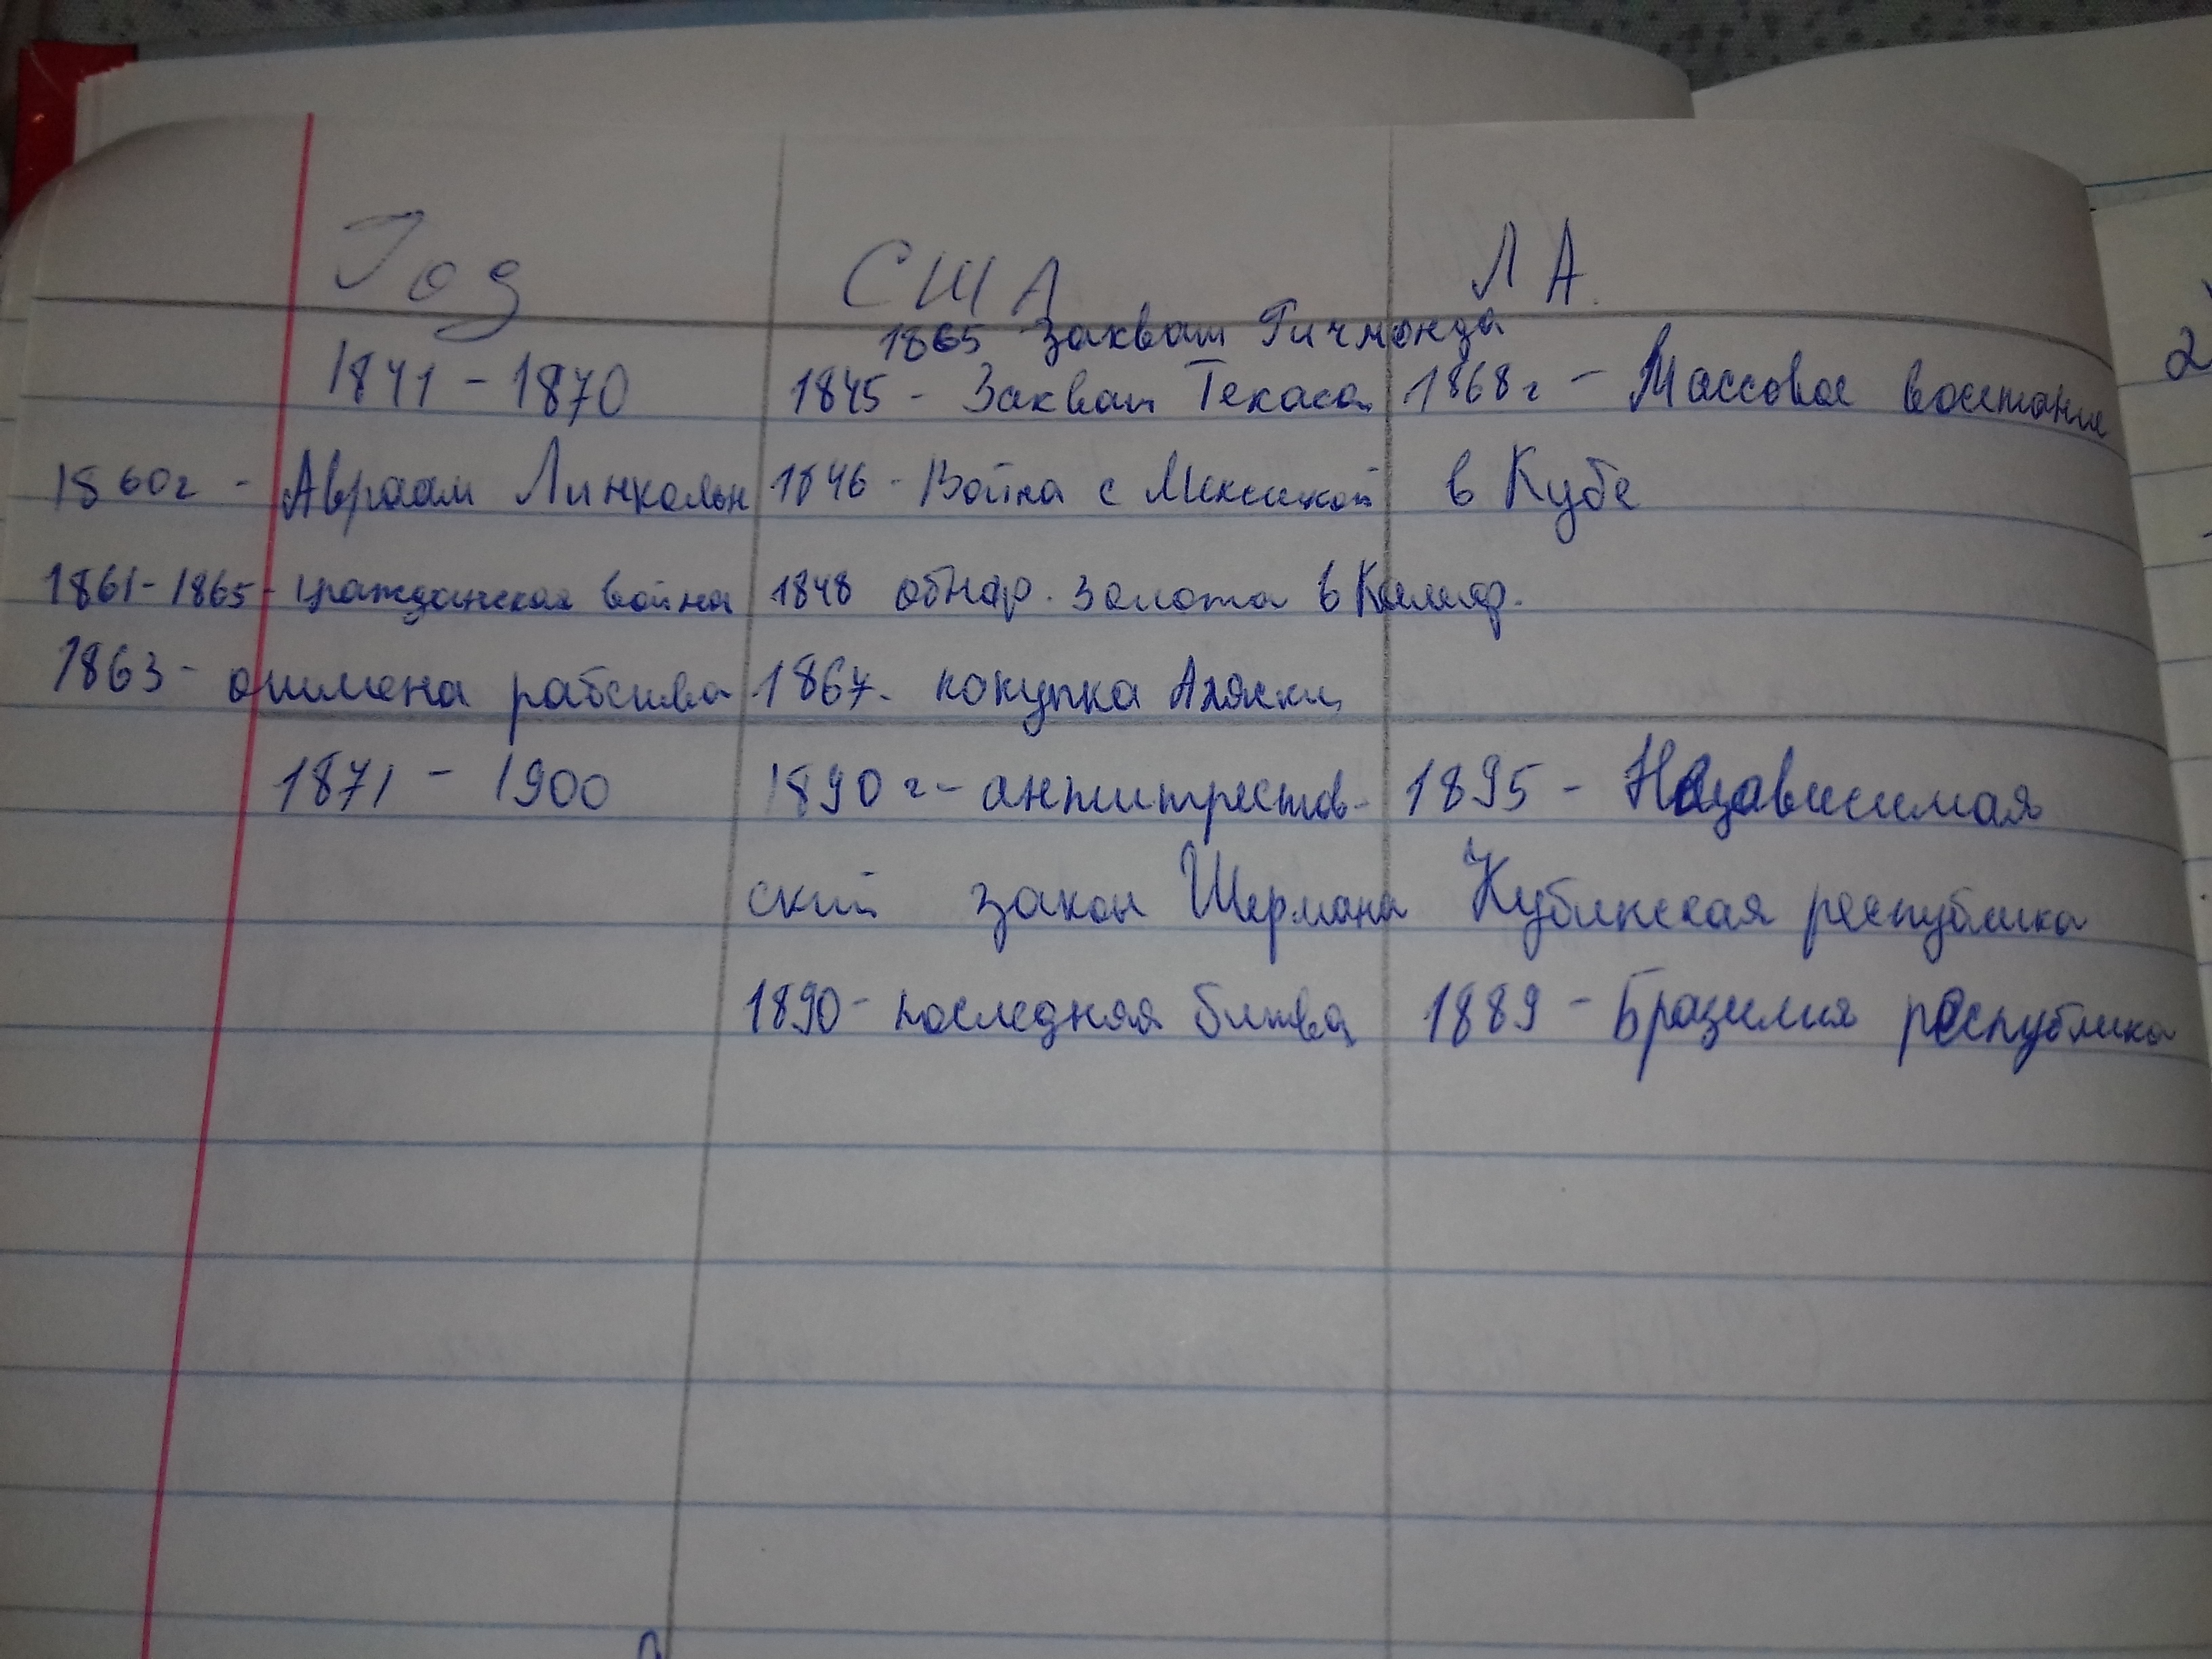 Год США ЛА.
1865 Захват Ричмонда
1841 - 1870 1845 - Захват Техаса 1868г - Массовое восстание
1860г - Авраам Линкольн 1846 - Война с Мексикой в Кубе
1861-1865- гражданская война 1848 обнар. золота в Калиф.
1863 - отмена рабства 1867 - покупка Аляски
1871 - 1900 1890г - антитрестов- 1895 - Независимая
ский закон Шермана Кубинская республика
1890 - последняя битва 1889 - Бразилия республика
2